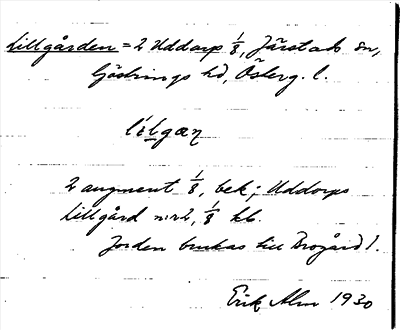 Lillgården = 2 Uddarp 1/8, Järstads sn,
Göstrings hd, Österg. l.
2 augment 1/8, bek; Uddarps
Lillgård nr 2, 1/8 hb.
Jorden brukas till Brogård 1.
Erik Alm 1930